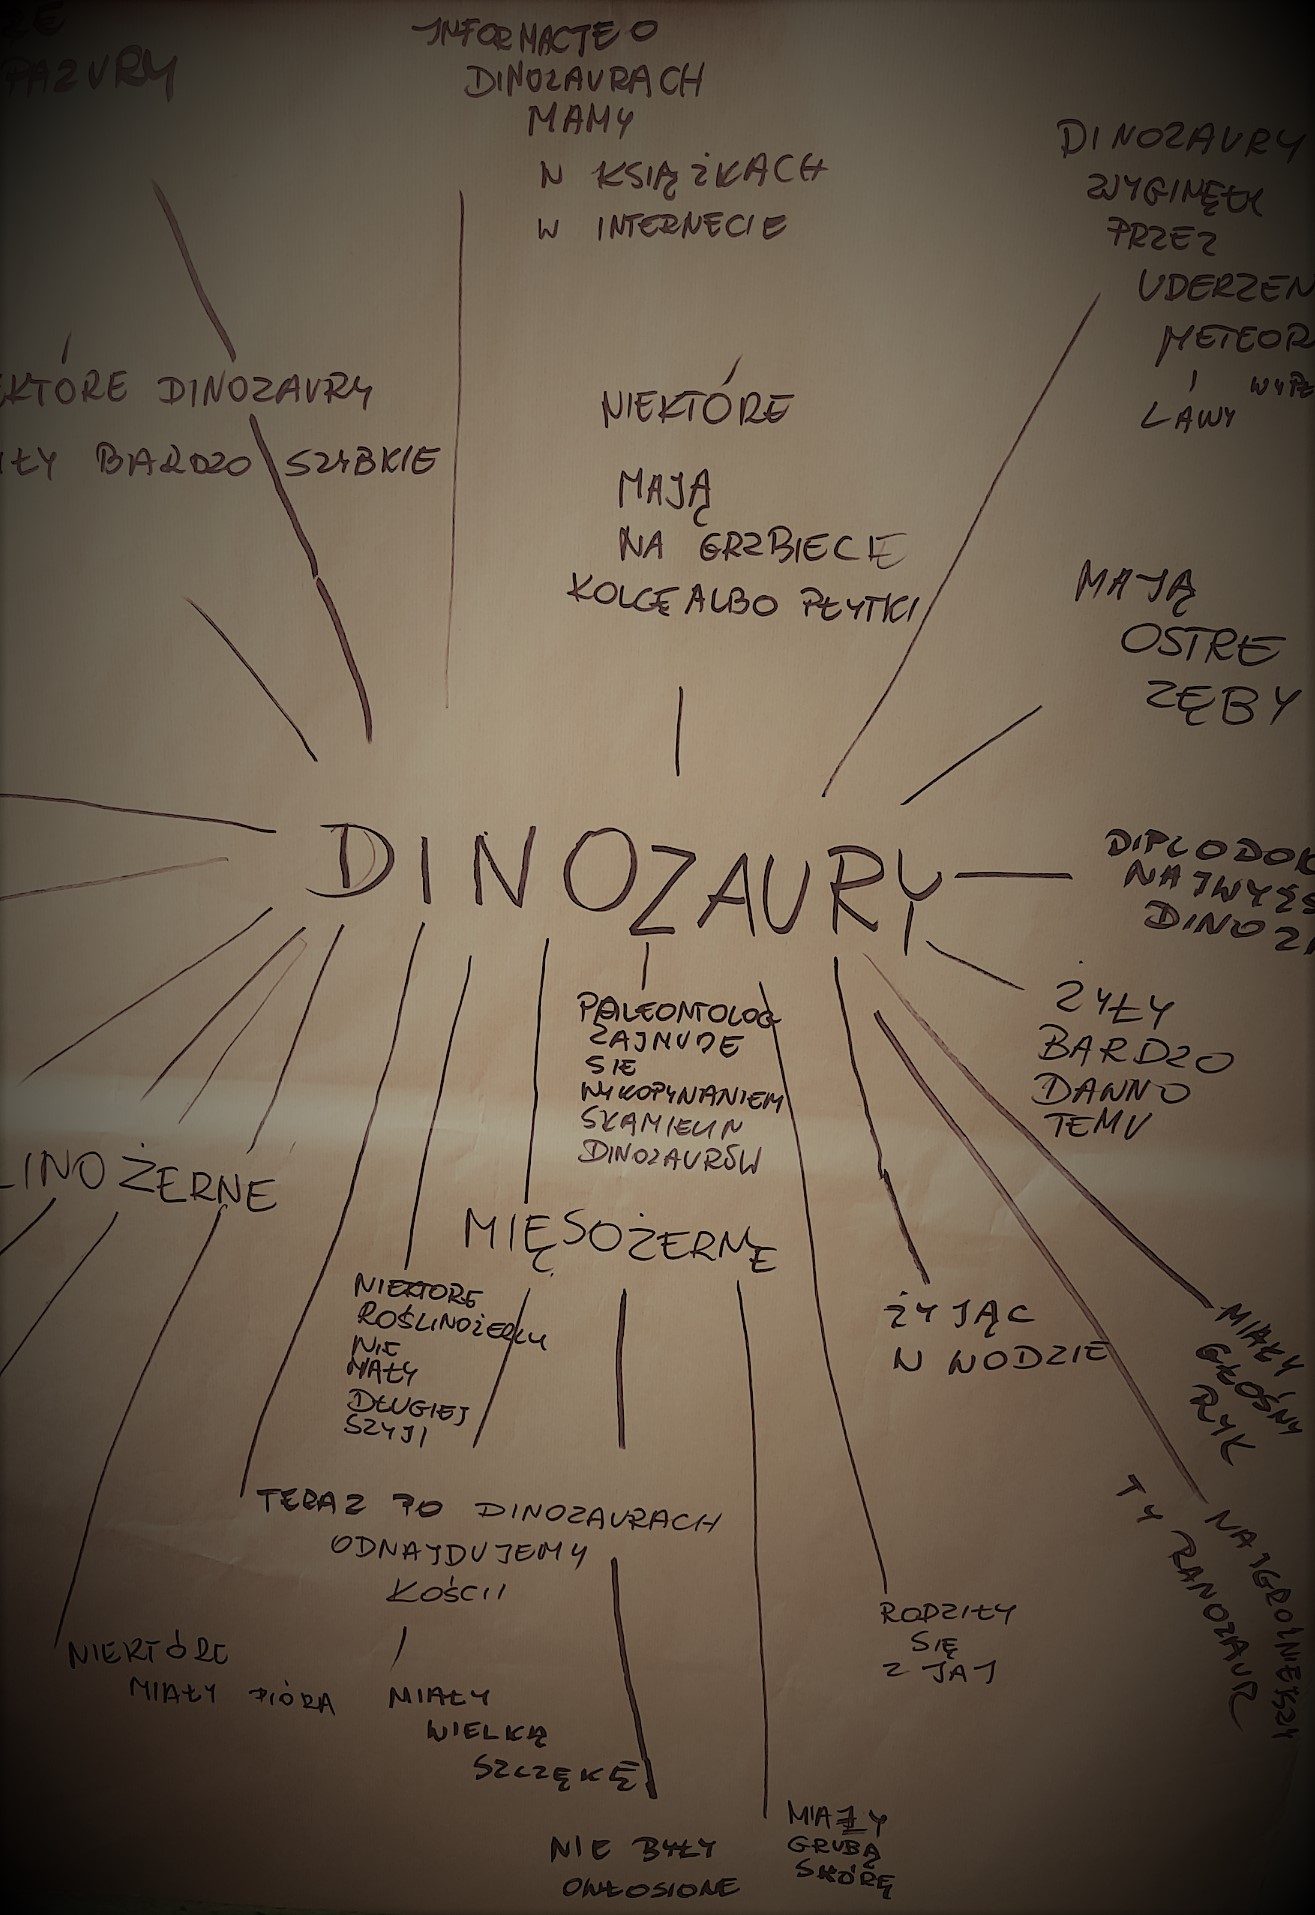 PAZURY
INFORMACJE O
DINOZAURACH
MAMY
W KSIĄŻKACH
W INTERNECIE
DINOZAURY
WYGINĘŁY
PRZEZ
UDERZEN
METEOR
I WYPŁ
LAWY
EKTÓRE DINOZAURY
YŁY BARDZO SZYBKIE
NIEKTÓRE
MAJĄ
NA GRZBIECIE
KOLCE ALBO PŁYTKI
MAJĄ
OSTRE
ZĘBY
DINOZAURY
DIPLODOK
NAJWYŻS
DINOZA
ŻYŁY
BARDZO
DAWNO
TEMU
PALEONTOLOG
ZAJMUJE
SIĘ
WYKOPYWANIEM
SKAMIELIN
DINOZAURÓW
LINOŻERNE
MIĘSOŻERNE
NIEKTORE
ROŚLINOŻERCY
NIE
MAŁY
DŁUGIEJ
SZYJI
ŻYJĄC
W WODZIE
MIAŁY
GŁOŚNY
RYK
TERAZ PO DINOZAURACH
ODNAJDUJEMY
KOŚCII
NAJGROŹNIEJSZY
TYRANOZAUR
RODZIŁY
SIĘ
Z JAJ
NIEKTÓRE
MIAŁY PIÓRA
MIAŁY
WIELKĄ
SZCZĘKĘ
MIAŁY
GRUBĄ
SKÓRĘ
NIE BYŁY
OWŁOSIONE